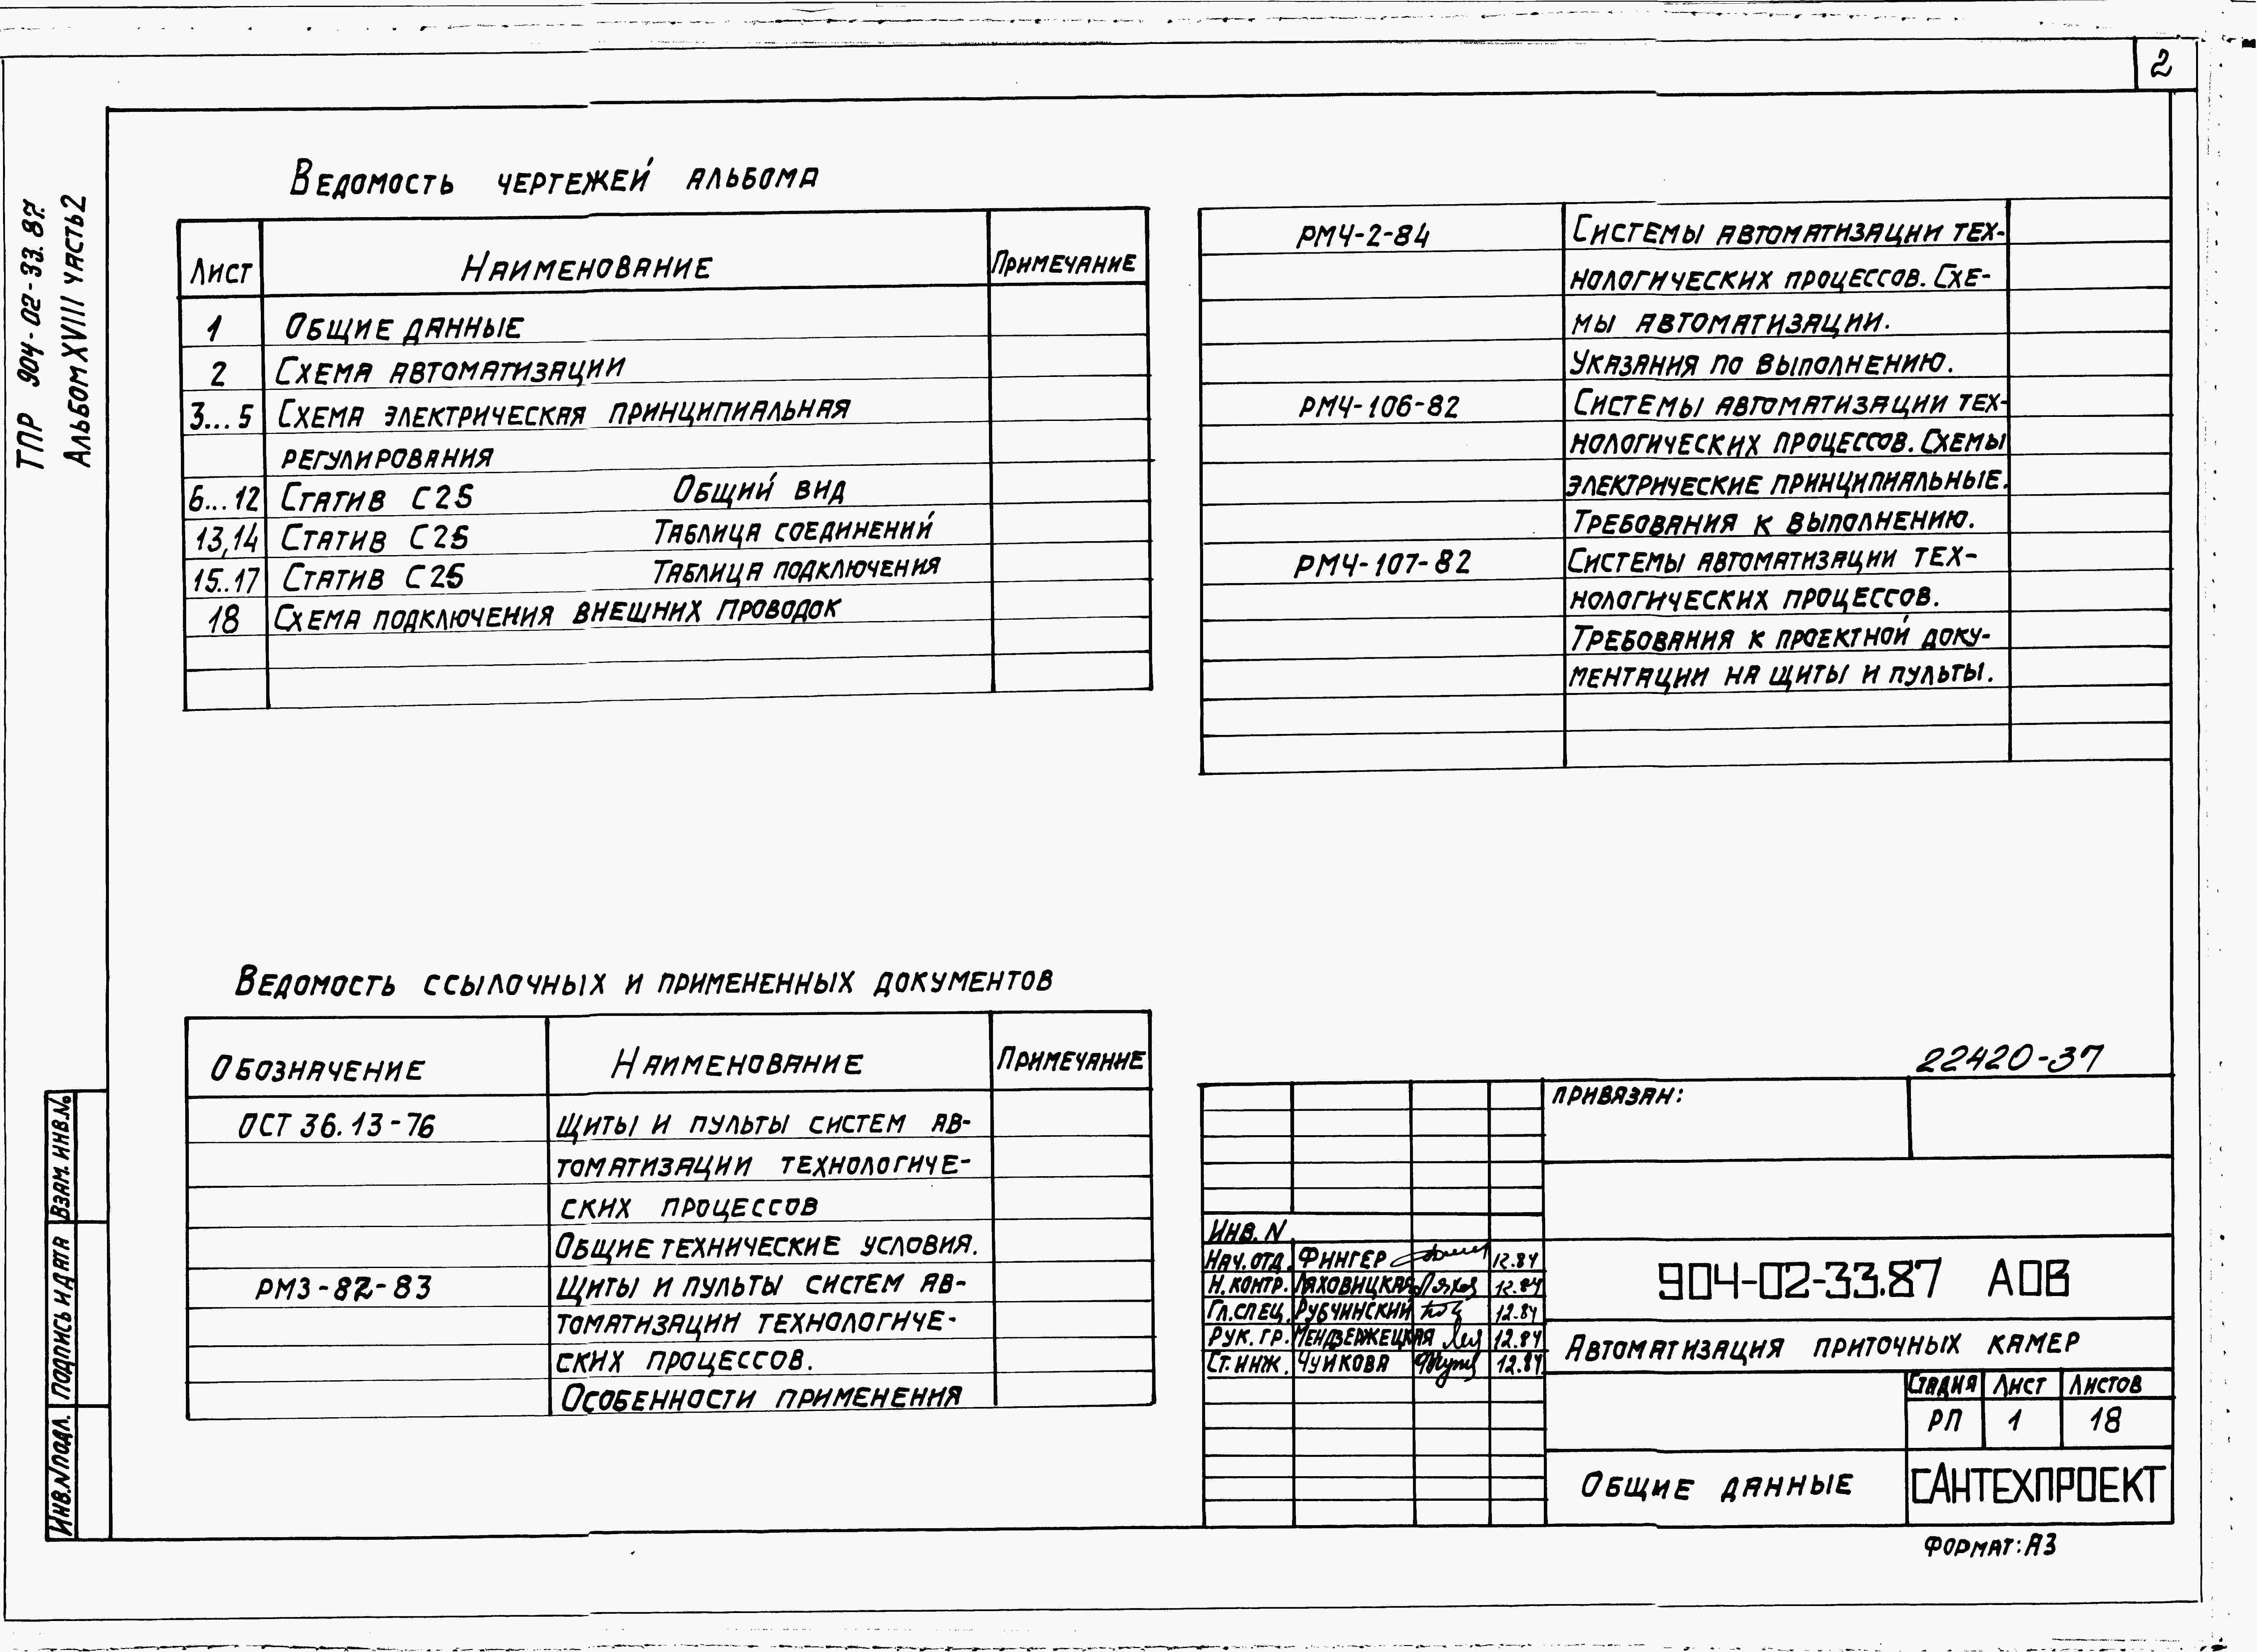 2
ТПР 904-02-33.87.
Альбом XVIII часть 2
Ведомость чертежей альбома
Лист Наименование Примечание
1 Общие данные
2 Схема автоматизации
3...5 Схема электрическая принципиальная
регулирования
6...12 Статив С25 Общий вид
13,14 Статив С25 Таблица соединений
15..17 Статив С25 Таблица подключения
18 Схема подключения внешних проводок
РМ4-2-84 Системы автоматизации тех-
нологических процессов. Схе-
мы автоматизации.
Указания по выполнению.
РМ4-106-82 Системы автоматизации тех-
нологических процессов. Схемы
электрические принципиальные.
Требования к выполнению.
РМ4-107-82 Системы автоматизации тех-
нологических процессов.
Требования к проектной доку-
ментации на щиты и пульты.
Ведомость ссылочных и примененных документов
Обозначение Наименование Примечание
ОСТ 36.13-76 Щиты и пульты систем ав-
томатизации технологиче-
ских процессов
Общие технические условия.
РМ3-82-83 Щиты и пульты систем ав-
томатизации технологиче-
ских процессов.
Особенности применения
22420-37
Привязан:
Инв. N
Нач. отд. Фингер 12.84
Н. контр. Ляховицкая 12.84
Гл. спец. Рубчинский 12.84
Рук. гр. Мендзержецкая 12.84
Ст. инж. Чуйкова 12.84
904-02-33.87 АОВ
Автоматизация приточных камер
Стадия Лист Листов
РП 1 18
Общие данные
САНТЕХПРОЕКТ
Формат: А3
Взам. инв. №
Подпись и дата
Инв. N подл.